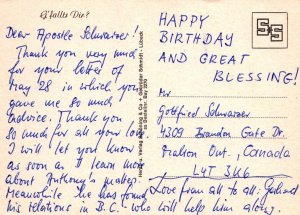 G'fallts Dir?
Dear Apostle Schwarzer!
Thank you very much
for your letter of
May 28 in which you
gave me so much
advice. Thank you
so much for all your love
I will let you know
as soon as I learn more
about Anthony's matter.
Meanwhile he was found
his relations in B.C. who will help him along.
HAPPY
BIRTHDAY
AND GREAT
BLESSING!
Gottfried Schwarzer
4309 Brandon Gate Dr.
Canada
L4T 3K6
Love from all to all: